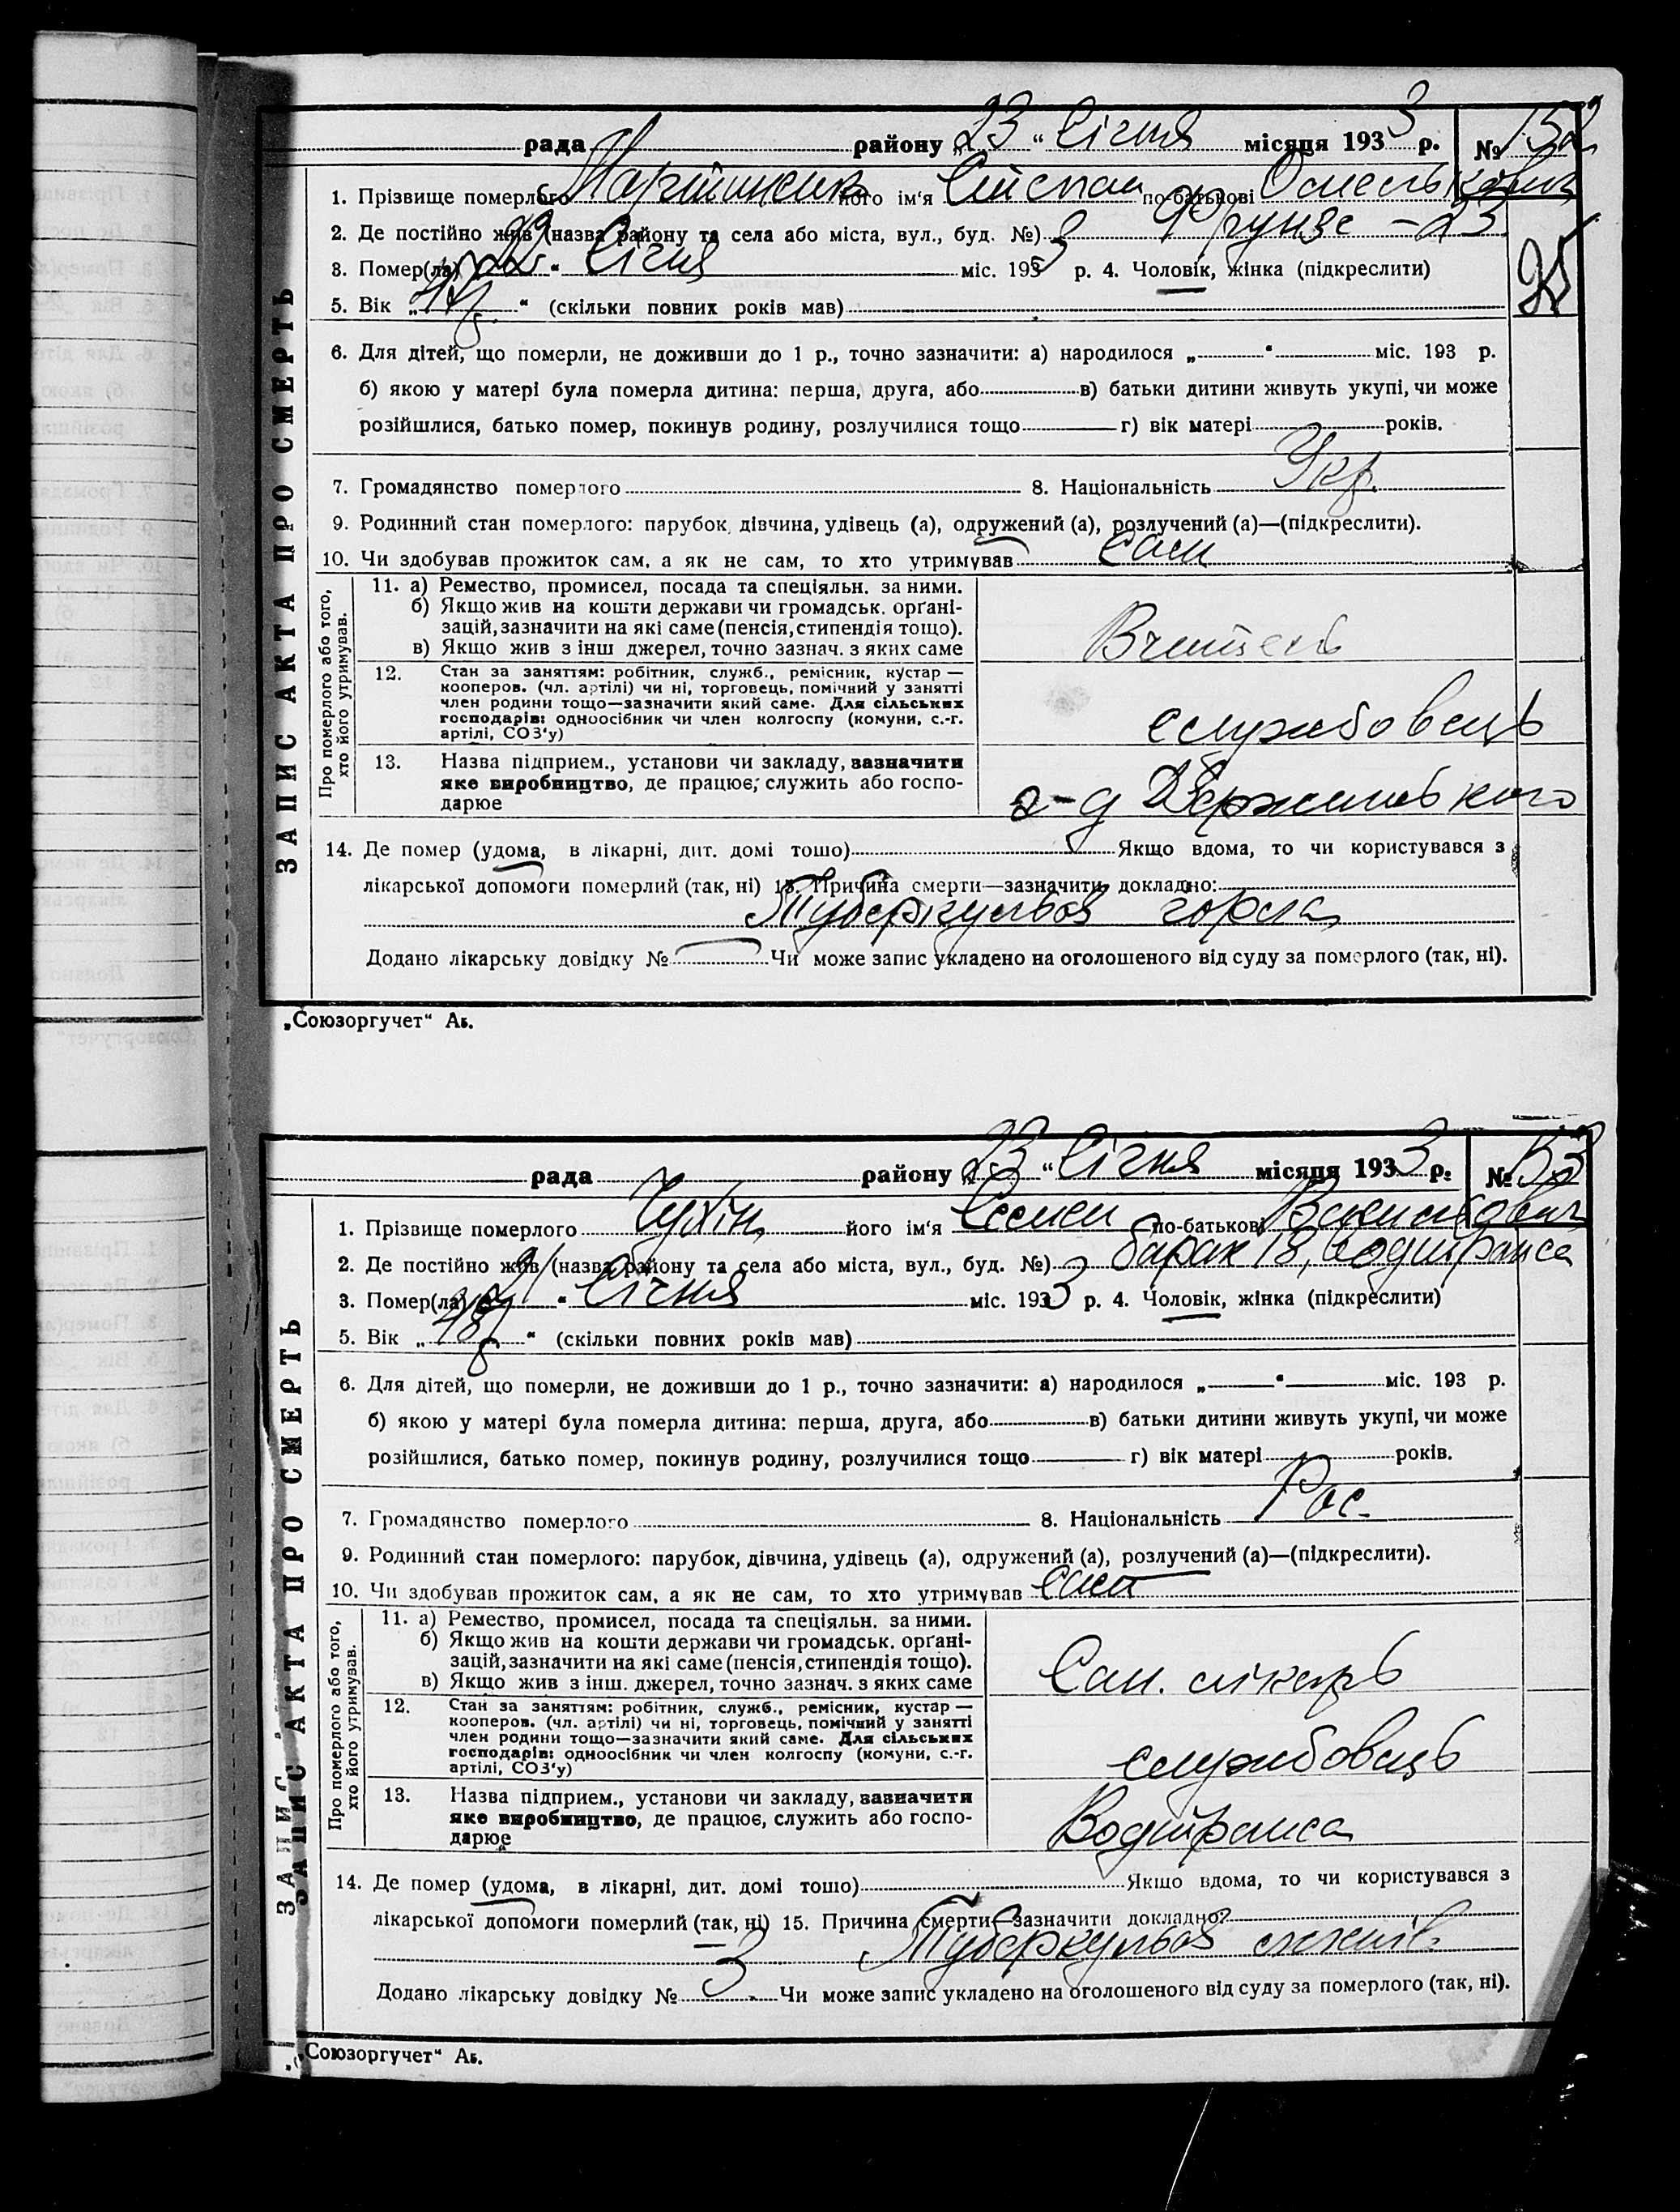 рада району „23“ Січня місяця 1933 р. № 152
1. Прізвище померлого Мартиненко його ім‘я Степан по-батькові Омелькович
2. Де постійно жив (назва району та села або міста, вул., буд. №) Фрунзе – 23
3. Помер(ла) „22“ Січня міс. 1933 р. 4. Чоловік, жінка (підкреслити)
5. Вік „ “ (скільки повних років мав)
6. Для дітей, що померли, не доживши до 1 р., точно зазначити: а) народилося „ “ міс. 193 р.
б) якою у матері була померла дитина: перша, друга, або в) батьки дитини живуть укупі, чи може
розійшлися, батько помер, покинув родину, розлучилися тощо г) вік матері років.
7. Громадянство померлого 8. Національність Укр.
9. Родинний стан померлого: парубок, дівчина, удівець (а), одружений (а), розлучений (а)—(підкреслити).
10. Чи здобував прожиток сам, а як не сам, то хто утримував сам
ЗАПИС АКТА ПРО СМЕРТЬ
Про померлого або того, хто його утримував.
11. а) Ремество, промисел, посада та спеціяльн. за ними.
б) Якщо жив на кошти держави чи громадськ. орґані-
зацій, зазначити на які саме (пенсія, стипендія тощо).
в) Якщо жив з інш джерел, точно зазнач. з яких саме
Вчитель
12. Стан за заняттям: робітник, служб., ремісник, кустар —
кооперов. (чл. артілі) чи ні, торговець, помічний у занятті
член родини тощо—зазначити який саме. Для сільських
господарів: одноосібник чи член колгоспу (комуни, с.-г.
артілі, СОЗ‘у)
службовець
13. Назва підприєм., установи чи закладу, зазначити
яке виробництво, де працює, служить або госпо-
дарює
з-д Держинського
14. Де помер (удома, в лікарні, дит. домі тощо) Якщо вдома, то чи користувався з
лікарської допомоги померлий (так, ні) 15. Причина смерти—зазначити докладно:
Туберкульоз горла
Додано лікарську довідку № Чи може запис укладено на оголошеного від суду за померлого (так, ні).
„Союзоргучет“ Аб.
рада району „23“ Січня місяця 1933 р. № 153
1. Прізвище померлого його ім‘я Семен по-батькові
2. Де постійно жив (назва району та села або міста, вул., буд. №) барак 18, Водтранса
3. Помер(ла) „21“ Січня міс. 1933 р. 4. Чоловік, жінка (підкреслити)
5. Вік „48“ (скільки повних років мав)
6. Для дітей, що померли, не доживши до 1 р., точно зазначити: а) народилося „ “ міс. 193 р.
б) якою у матері була померла дитина: перша, друга, або в) батьки дитини живуть укупі, чи може
розійшлися, батько помер, покинув родину, розлучилися тощо г) вік матері років.
7. Громадянство померлого 8. Національність Рос.
9. Родинний стан померлого: парубок, дівчина, удівець (а), одружений (а), розлучений (а)—(підкреслити).
10. Чи здобував прожиток сам, а як не сам, то хто утримував сам
ЗАПИС АКТА ПРО СМЕРТЬ
Про померлого або того, хто його утримував.
11. а) Ремество, промисел, посада та спеціяльн. за ними.
б) Якщо жив на кошти держави чи громадськ. орґані-
зацій, зазначити на які саме (пенсія, стипендія тощо).
в) Якщо жив з інш. джерел, точно зазнач. з яких саме
Сан. лікарь
12. Стан за заняттям: робітник, служб., ремісник, кустар —
кооперов. (чл. артілі) чи ні, торговець, помічний у занятті
член родини тощо—зазначити який саме. Для сільських
господарів: одноосібник чи член колгоспу (комуни, с.-г.
артілі, СОЗ‘у)
службовець
13. Назва підприєм., установи чи закладу, зазначити
яке виробництво, де працює, служить або госпо-
дарює
Водтранса
14. Де помер (удома, в лікарні, дит. домі тощо) Якщо вдома, то чи користувався з
лікарської допомоги померлий (так, ні) 15. Причина смерти—зазначити докладно:
Туберкульоз легенів.
Додано лікарську довідку № 3 Чи може запис укладено на оголошеного від суду за померлого (так, ні).
„Союзоргучет“ Аб.